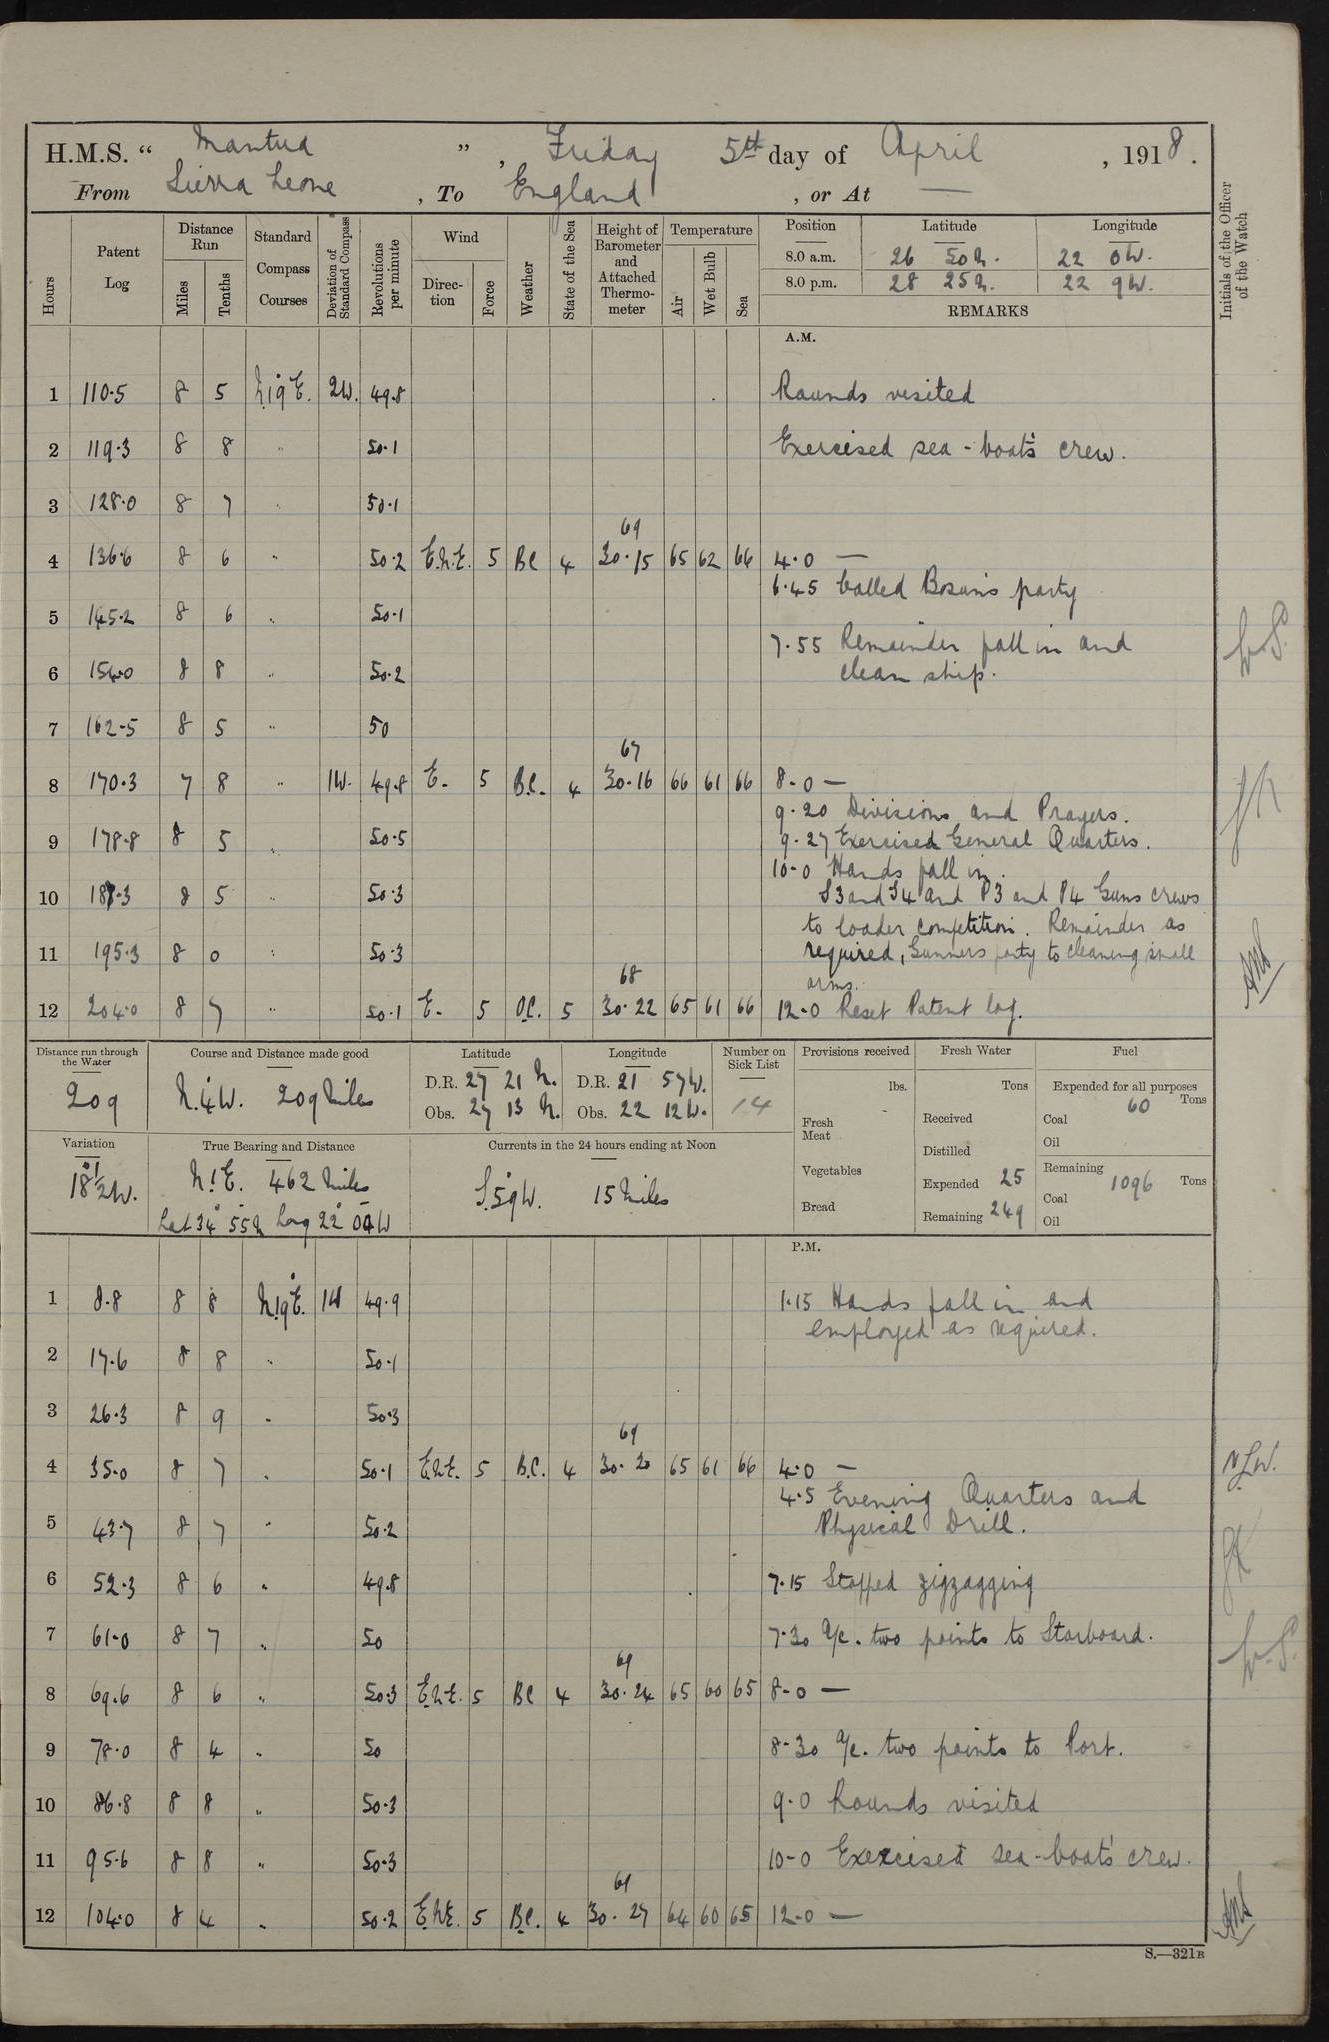 H.M.S. " Mantua ", Friday 5th day of April, 1918.
From Sierra Leone, To England, or At —
Hours
Patent Log
Distance Run
Miles
Tenths
Standard Compass Courses
Deviation of Standard Compass
Revolutions per minute
Wind
Direction
Force
Weather
State of the Sea
Height of Barometer and Attached Thermometer
Temperature
Air
Wet Bulb
Sea
Position Latitude Longitude
8.0 a.m. 26 50 N. 22 0 W.
8.0 p.m. 28 25 N. 22 9 W.
REMARKS
Initials of the Officer of the Watch
A.M.
1 110.5 8 5 N.19°E. 2W. 49.8 Rounds visited
2 119.3 8 8 " 50.1 Exercised sea-boat's crew.
3 128.0 8 7 " 50.1
69
4 136.6 8 6 " 50.2 E.N.E. 5 BC 4 30.15 65 62 66 4.0 —
6.45 Called Bosun's party
5 145.2 8 6 " 50.1
7.55 Remainder fall in and
6 154.0 8 8 " 50.2 clean ship.
W.S.
7 162.5 8 5 " 50
67
8 170.3 7 8 " 1W. 49.8 E. 5 B.C. 4 30.16 66 61 66 8.0 —
9.20 Divisions and Prayers.
9 178.8 8 5 " 50.5 9.27 Exercised General Quarters.
10.0 Hands fall in.
10 187.3 8 5 " 50.3 S3 and S4 and P3 and P4 Guns crews
to loader competition. Remainder as
11 195.3 8 0 " 50.3 required, Gunners party to cleaning small
68 arms.
12 204.0 8 7 " 50.1 E. 5 O.C. 5 30.22 65 61 66 12.0 Reset Patent log.
Distance run through the Water
209
Course and Distance made good
N.4°W. 209 Miles
Latitude
D.R. 27 21 N.
Obs. 27 13 N.
Longitude
D.R. 21 57 W.
Obs. 22 12 W.
Number on Sick List
14
Provisions received
lbs.
Fresh Meat
Vegetables
Bread
Fresh Water
Tons
Received
Distilled
Expended 25
Remaining 249
Fuel
Expended for all purposes
Coal 60 Tons
Oil
Remaining
Coal 1096 Tons
Oil
Variation
18½°W.
True Bearing and Distance
N.1°E. 462 Miles
Lat 34° 55 N Long 22° 04 W
Currents in the 24 hours ending at Noon
S.59°W. 15 Miles
P.M.
1 8.8 8 8 N.19°E. 1W 49.9 1.15 Hands fall in and
employed as required.
2 17.6 8 8 " 50.1
3 26.3 8 9 " 50.3
69
4 35.0 8 7 " 50.1 E.N.E. 5 B.C. 4 30.20 65 61 66 4.0 —
4.5 Evening Quarters and
5 43.7 8 7 " 50.2 Physical Drill.
6 52.3 8 6 " 49.8 7.15 Stopped zigzagging
7 61.0 8 7 " 50 7.30 A/c. two points to Starboard.
W.S.
69
8 69.6 8 6 " 50.3 E.N.E. 5 BC 4 30.24 65 60 65 8.0 —
9 78.0 8 4 " 50 8.30 A/c. two points to Port.
10 86.8 8 8 " 50.3 9.0 Rounds visited
11 95.6 8 8 " 50.3 10.0 Exercised sea-boat's crew.
69
12 104.0 8 4 " 50.2 E.N.E. 5 B.C. 4 30.27 64 60 65 12.0 —
S.—321B